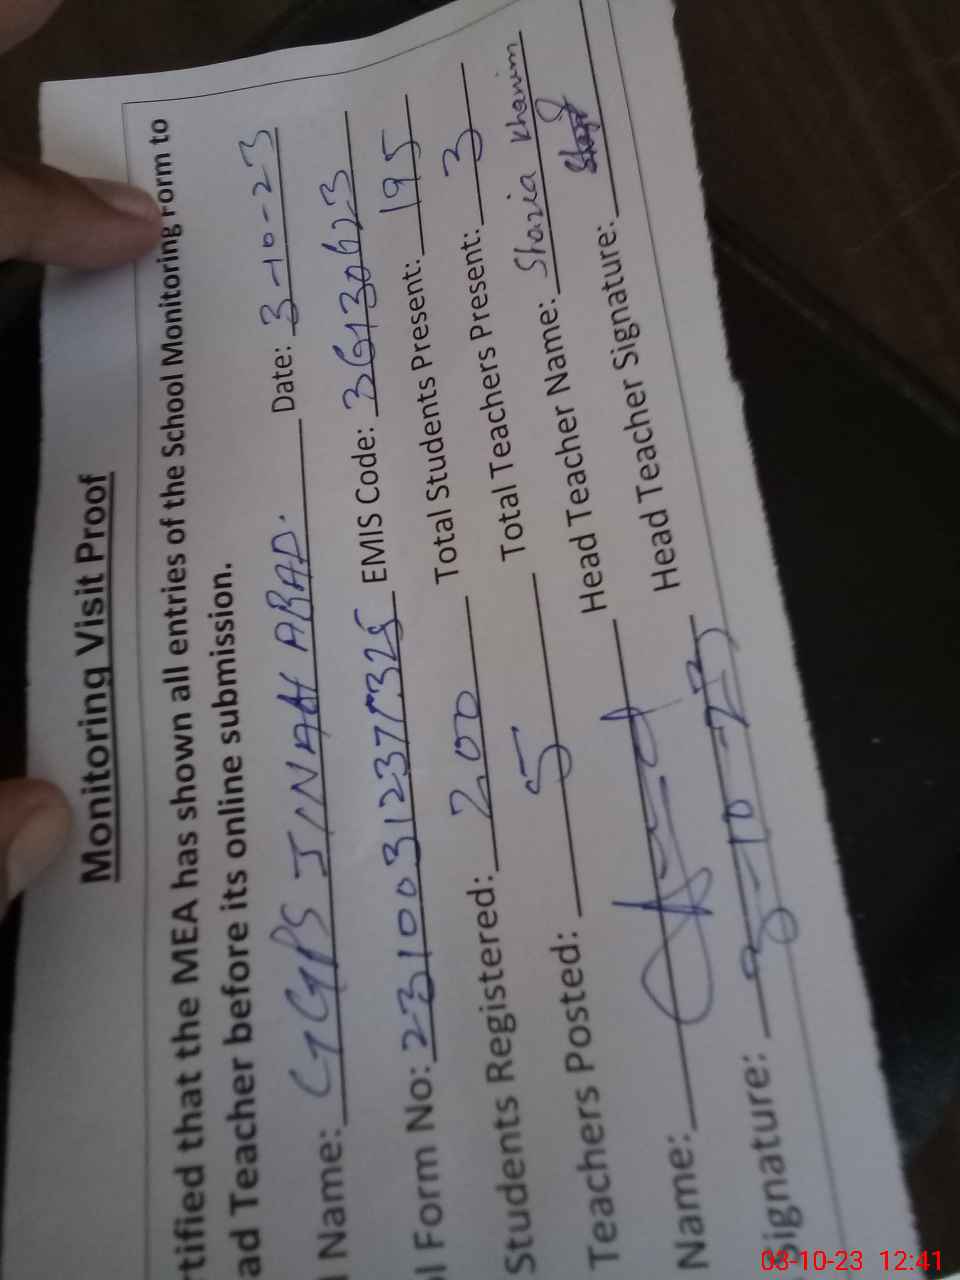 Monitoring Visit Proof
rtified that the MEA has shown all entries of the School Monitoring Form to
ad Teacher before its online submission.
l Name: GGPS JINAH ABAD. Date: 3-10-23
l Form No: EMIS Code:
Students Registered: 200 Total Students Present: 195
Teachers Posted: 5 Total Teachers Present: 3
Name: Head Teacher Name: Shazia Khanim
Signature: 3-10-23 Head Teacher Signature:
03-10-23 12:41